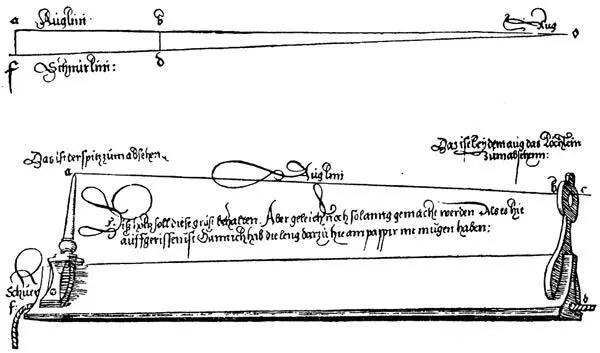 a Auglini b Aug o
f Schnürlini: d
Das ist der spitz zum absehen
Das ist bey dem aug das Löchlein
zum absehenn:
a Auglini b c
Ditz holtz soll diese gröss behalten. Aber geleich noch so lanng gemacht werden Als es hie
auffgerissen ist Dann ich hab die leng darzu hie am pappir nit mügen haben:
Schnür
f e d